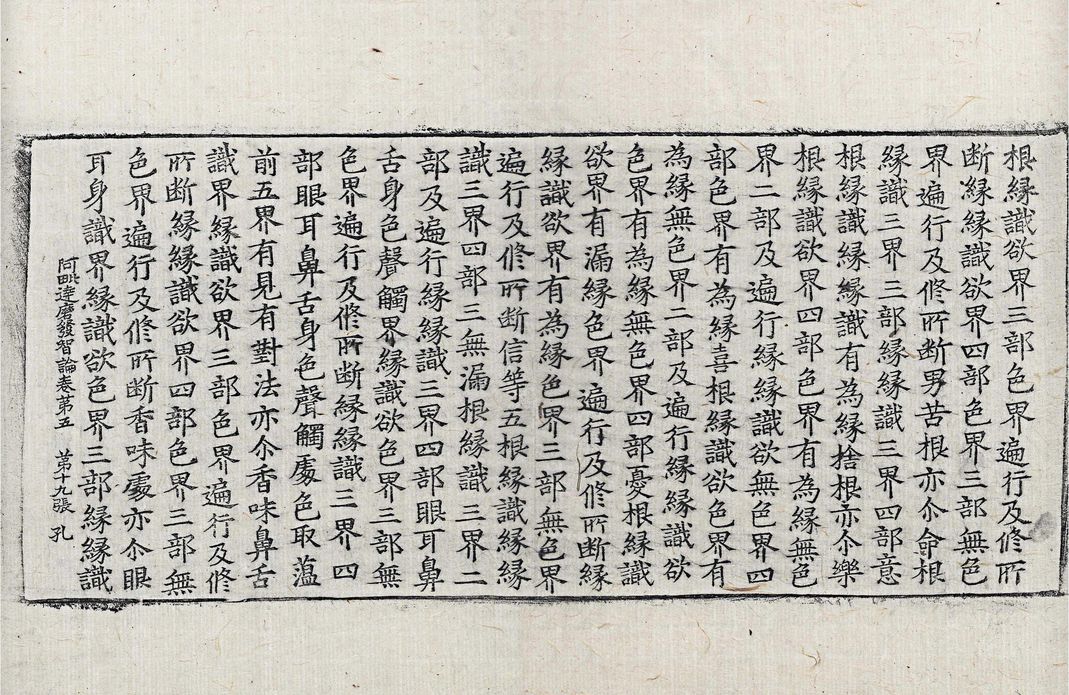 根縁識欲界三部色界遍行及修所
断縁縁識欲界四部色界三部無色
界遍行及修所断男苦根亦尒命根
縁識三界三部縁縁識三界四部意
根縁識縁縁識有為縁捨根亦尒樂
根縁識欲界四部色界有為縁無色
界二部及遍行縁縁識欲無色界四
部色界有為縁喜根縁識欲色界有
為縁無色界二部及遍行縁縁識欲
色界有為縁無色界四部憂根縁識
欲界有漏縁色界遍行及修所断縁
縁識欲界有為縁色界三部無色界
遍行及修所断信等五根縁識縁縁
識三界四部三無漏根縁識三界二
部及遍行縁縁識三界四部眼耳鼻
舌身色聲觸界縁識欲色界三部無
色界遍行及修所断縁縁識三界四
部眼耳鼻舌身色聲觸處色取薀
前五界有見有對法亦尒香味鼻舌
識界縁識欲界三部色界遍行及修
所断縁縁識欲界四部色界三部無
色界遍行及修所断香味處亦尒眼
耳身識界縁識欲色界三部縁縁識
阿毗達磨發智論卷第五 第十九張 孔